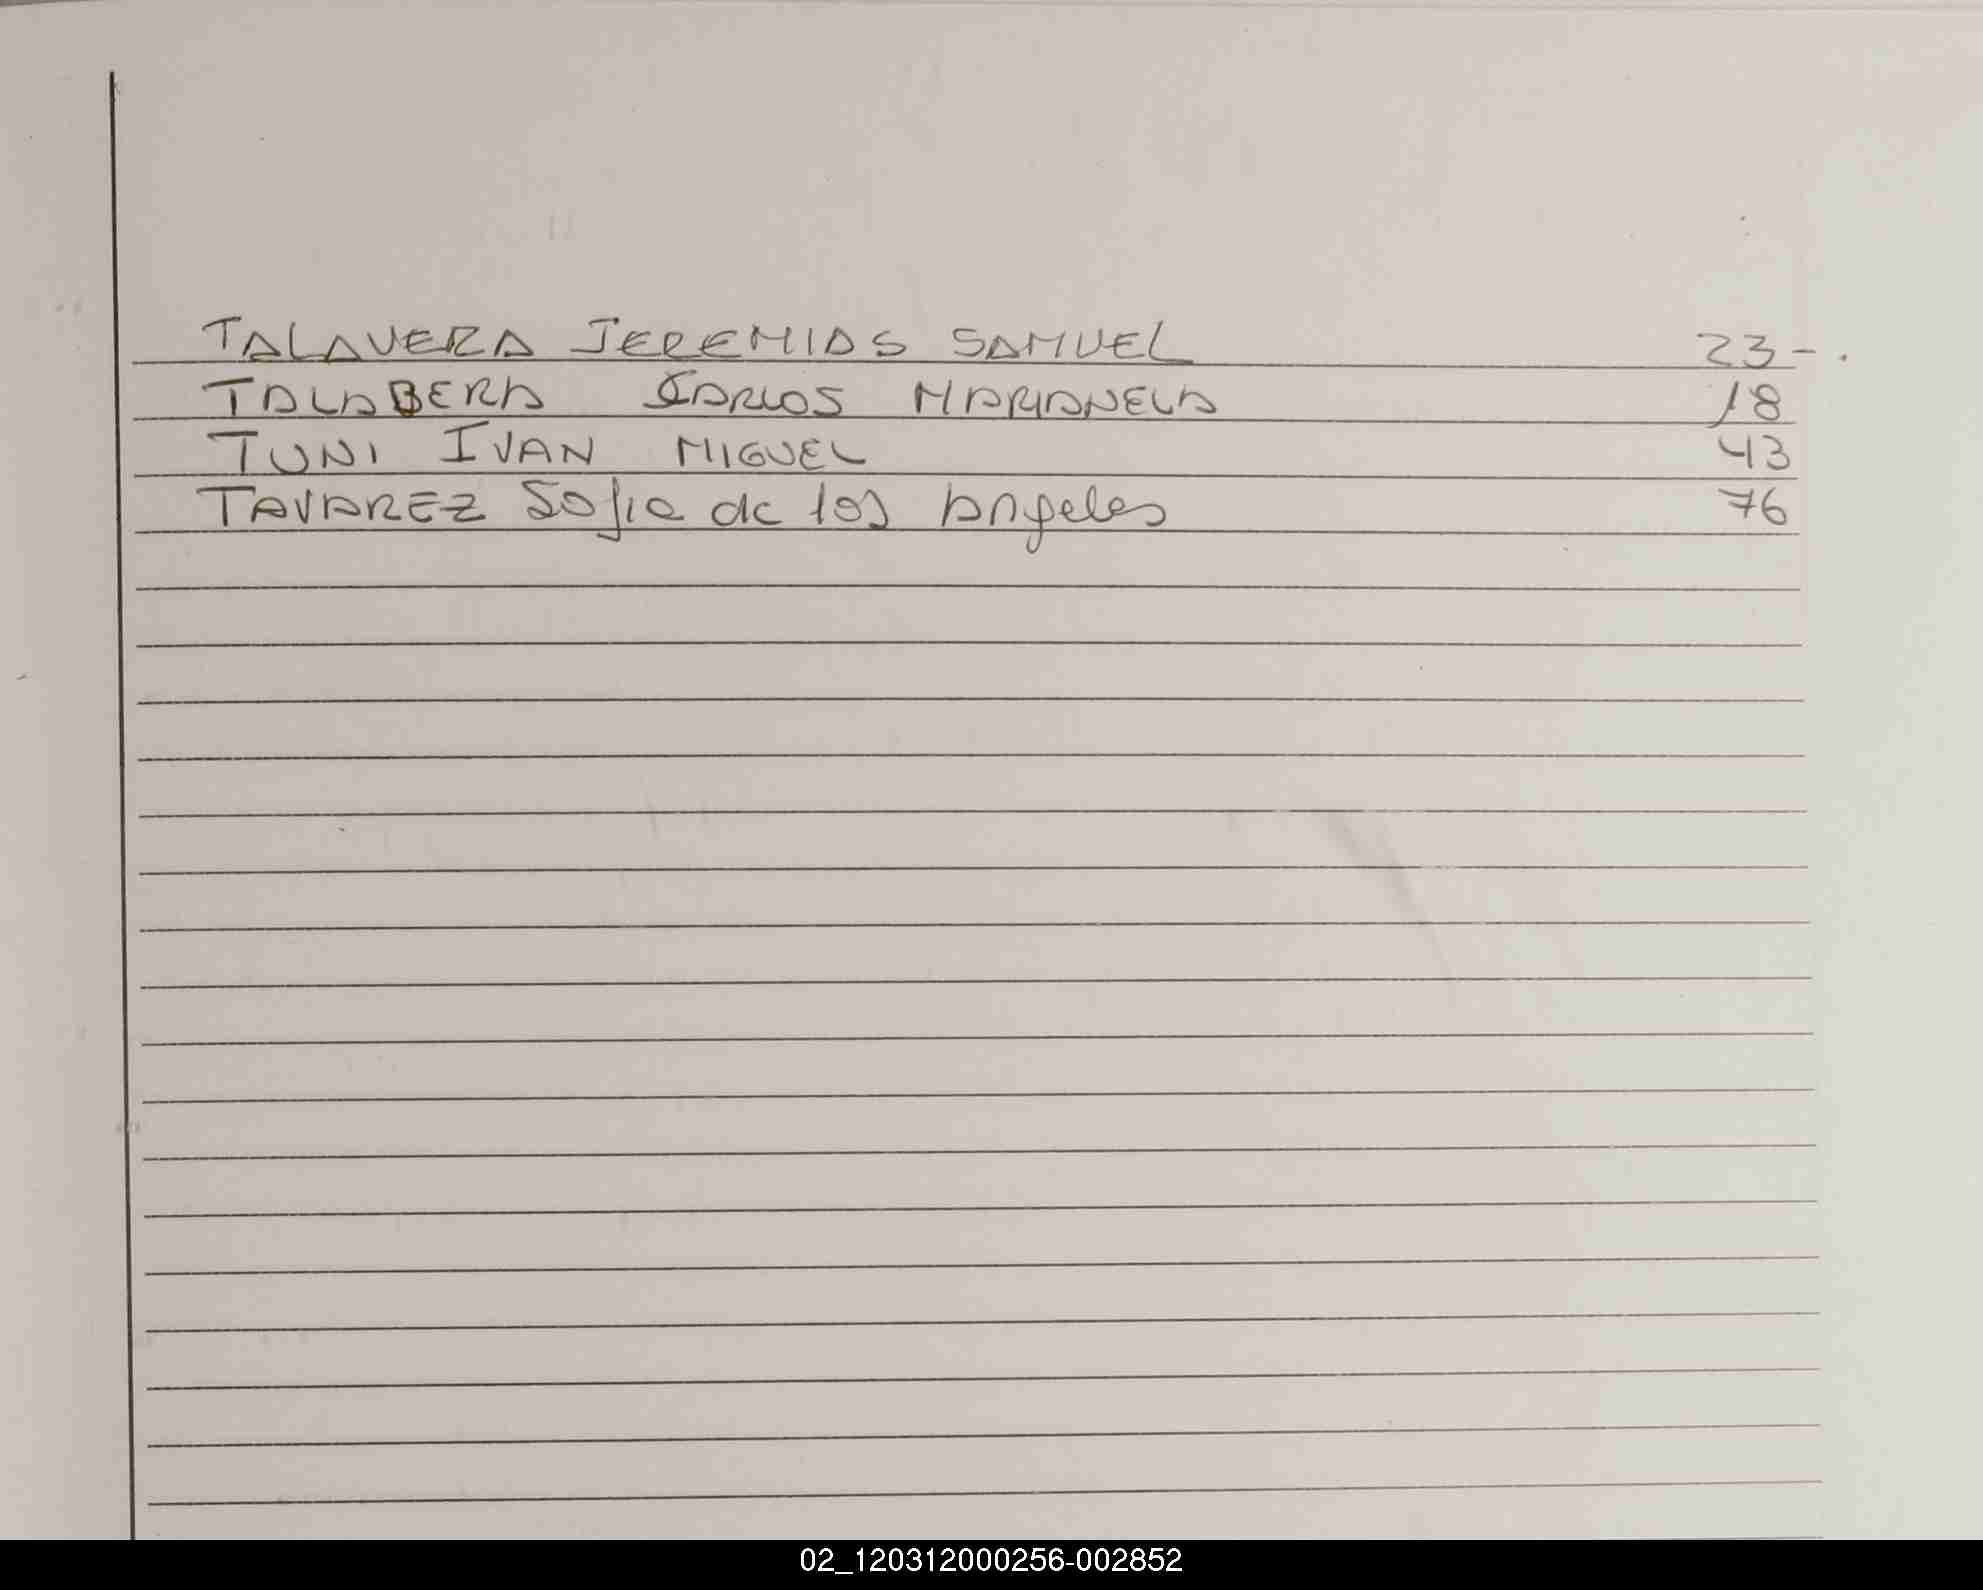 TALAVERA JEREMIAS SAMUEL 23-.
TALABERA MARIANELA 18
TUNI IVAN MIGUEL 43
TAVAREZ Sofia de los Angeles 76
02_120312000256-002852